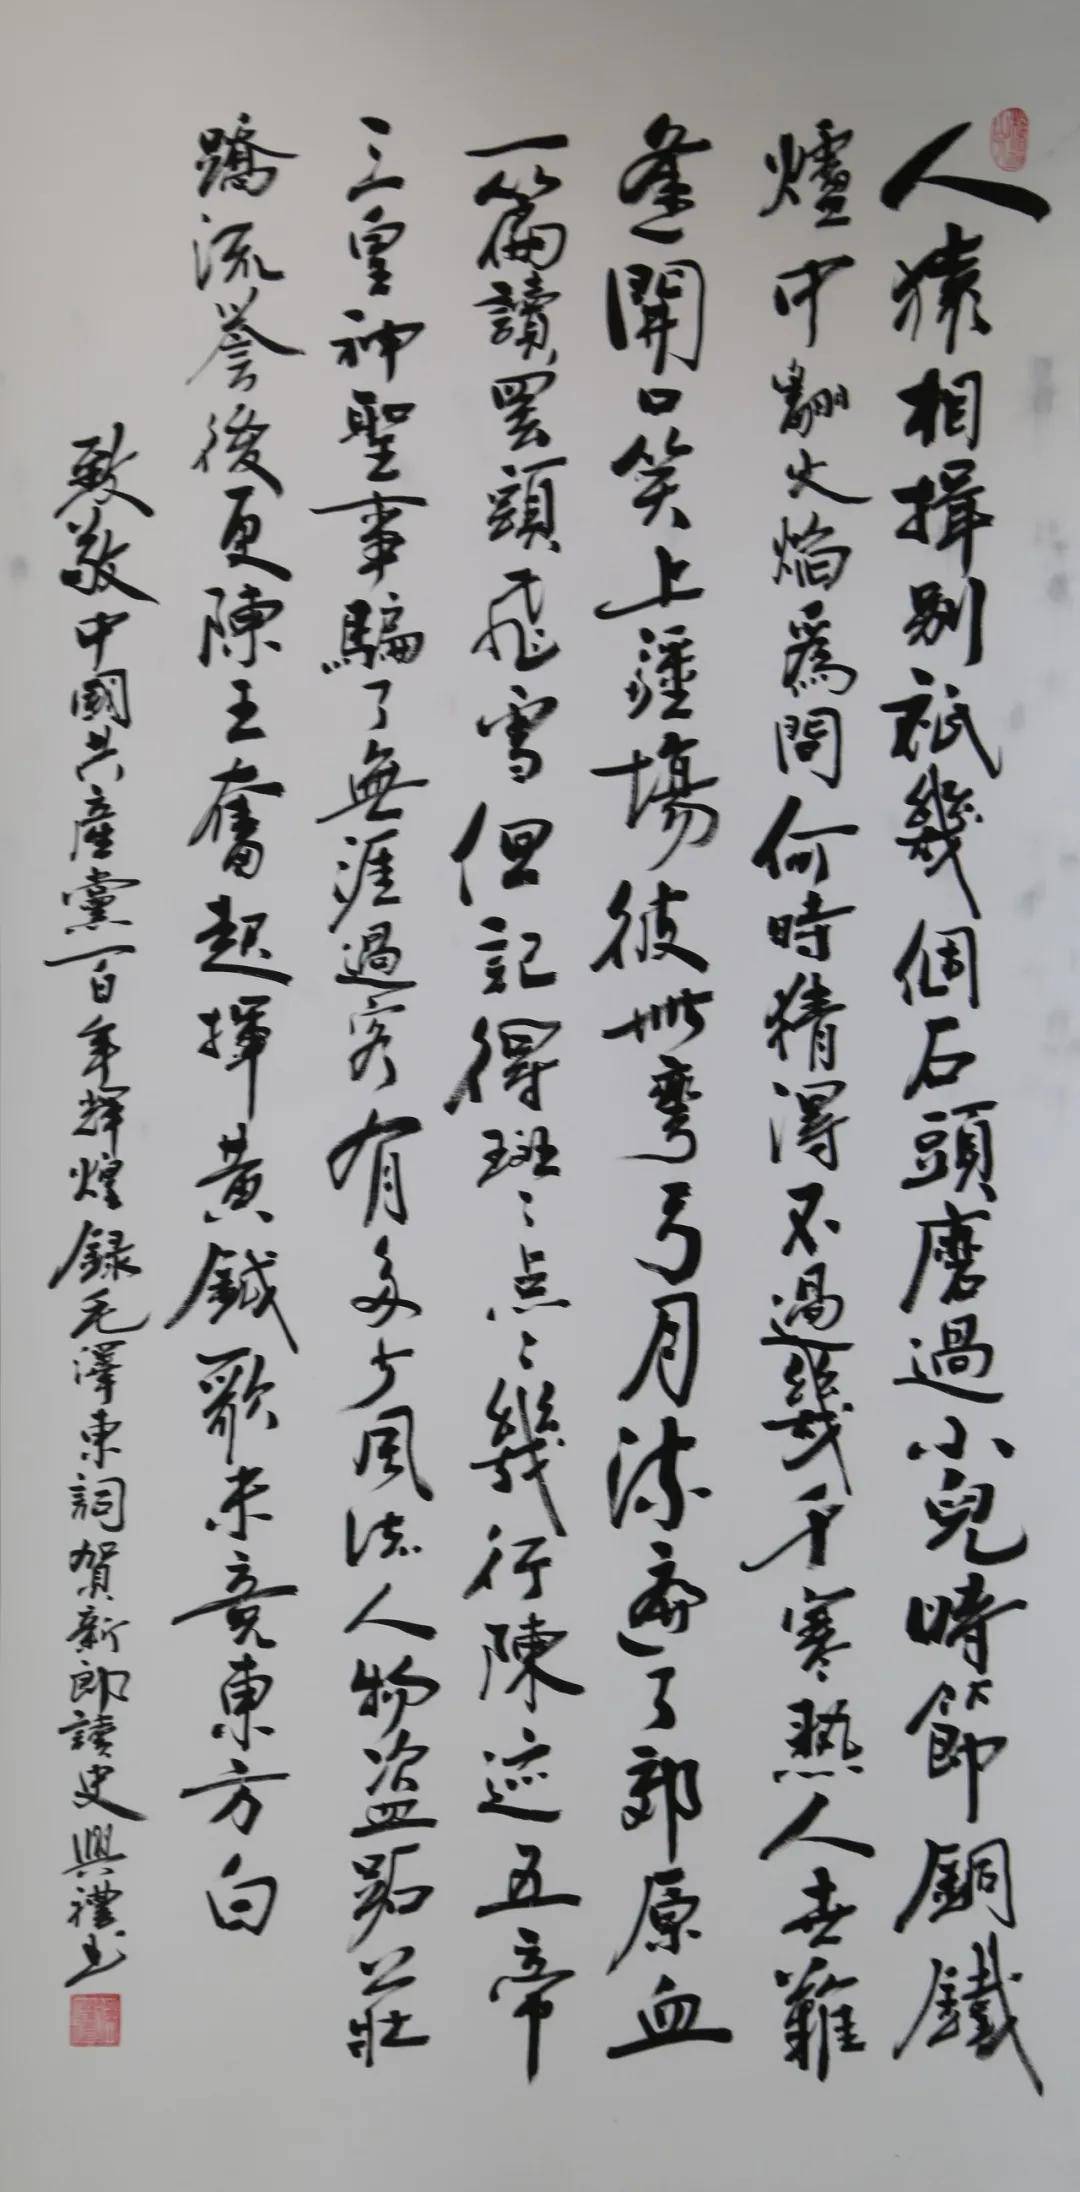 人猿相揖别祇幾個石頭磨過小兒時節銅鐵
爐中翻火焰爲問何時猜得不過幾千寒熱人世難
逢開口笑上疆場彼此彎弓月流遍了郊原血
一篇讀罷頭飛雪但記得斑〻点〻幾行陳迹五帝
三皇神聖事騙了無涯過客有多少風流人物盗跖莊
蹻流譽後更陳王奮起揮黄鉞歌未竟東方白
致敬中國共産黨百年輝煌録毛澤東詞賀新郎讀史興禮书